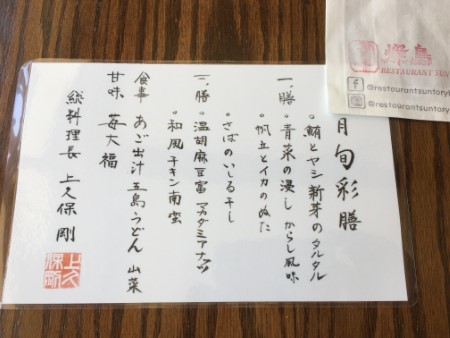 月旬彩膳
一、膳
○鮪とヤシ新芽のタルタル
○青菜の浸し からし風味
○帆立とイカのぬた
○さばのいしる干し
二、膳
○温胡麻豆富 マカダミアナッツ
○和風チキン南蛮
食事 あご出汁五島うどん 山菜
甘味 苺大福
総料理長 上久保 剛
RESTAURANT SUN
@restaurantsuntory
@restaurantsuntory